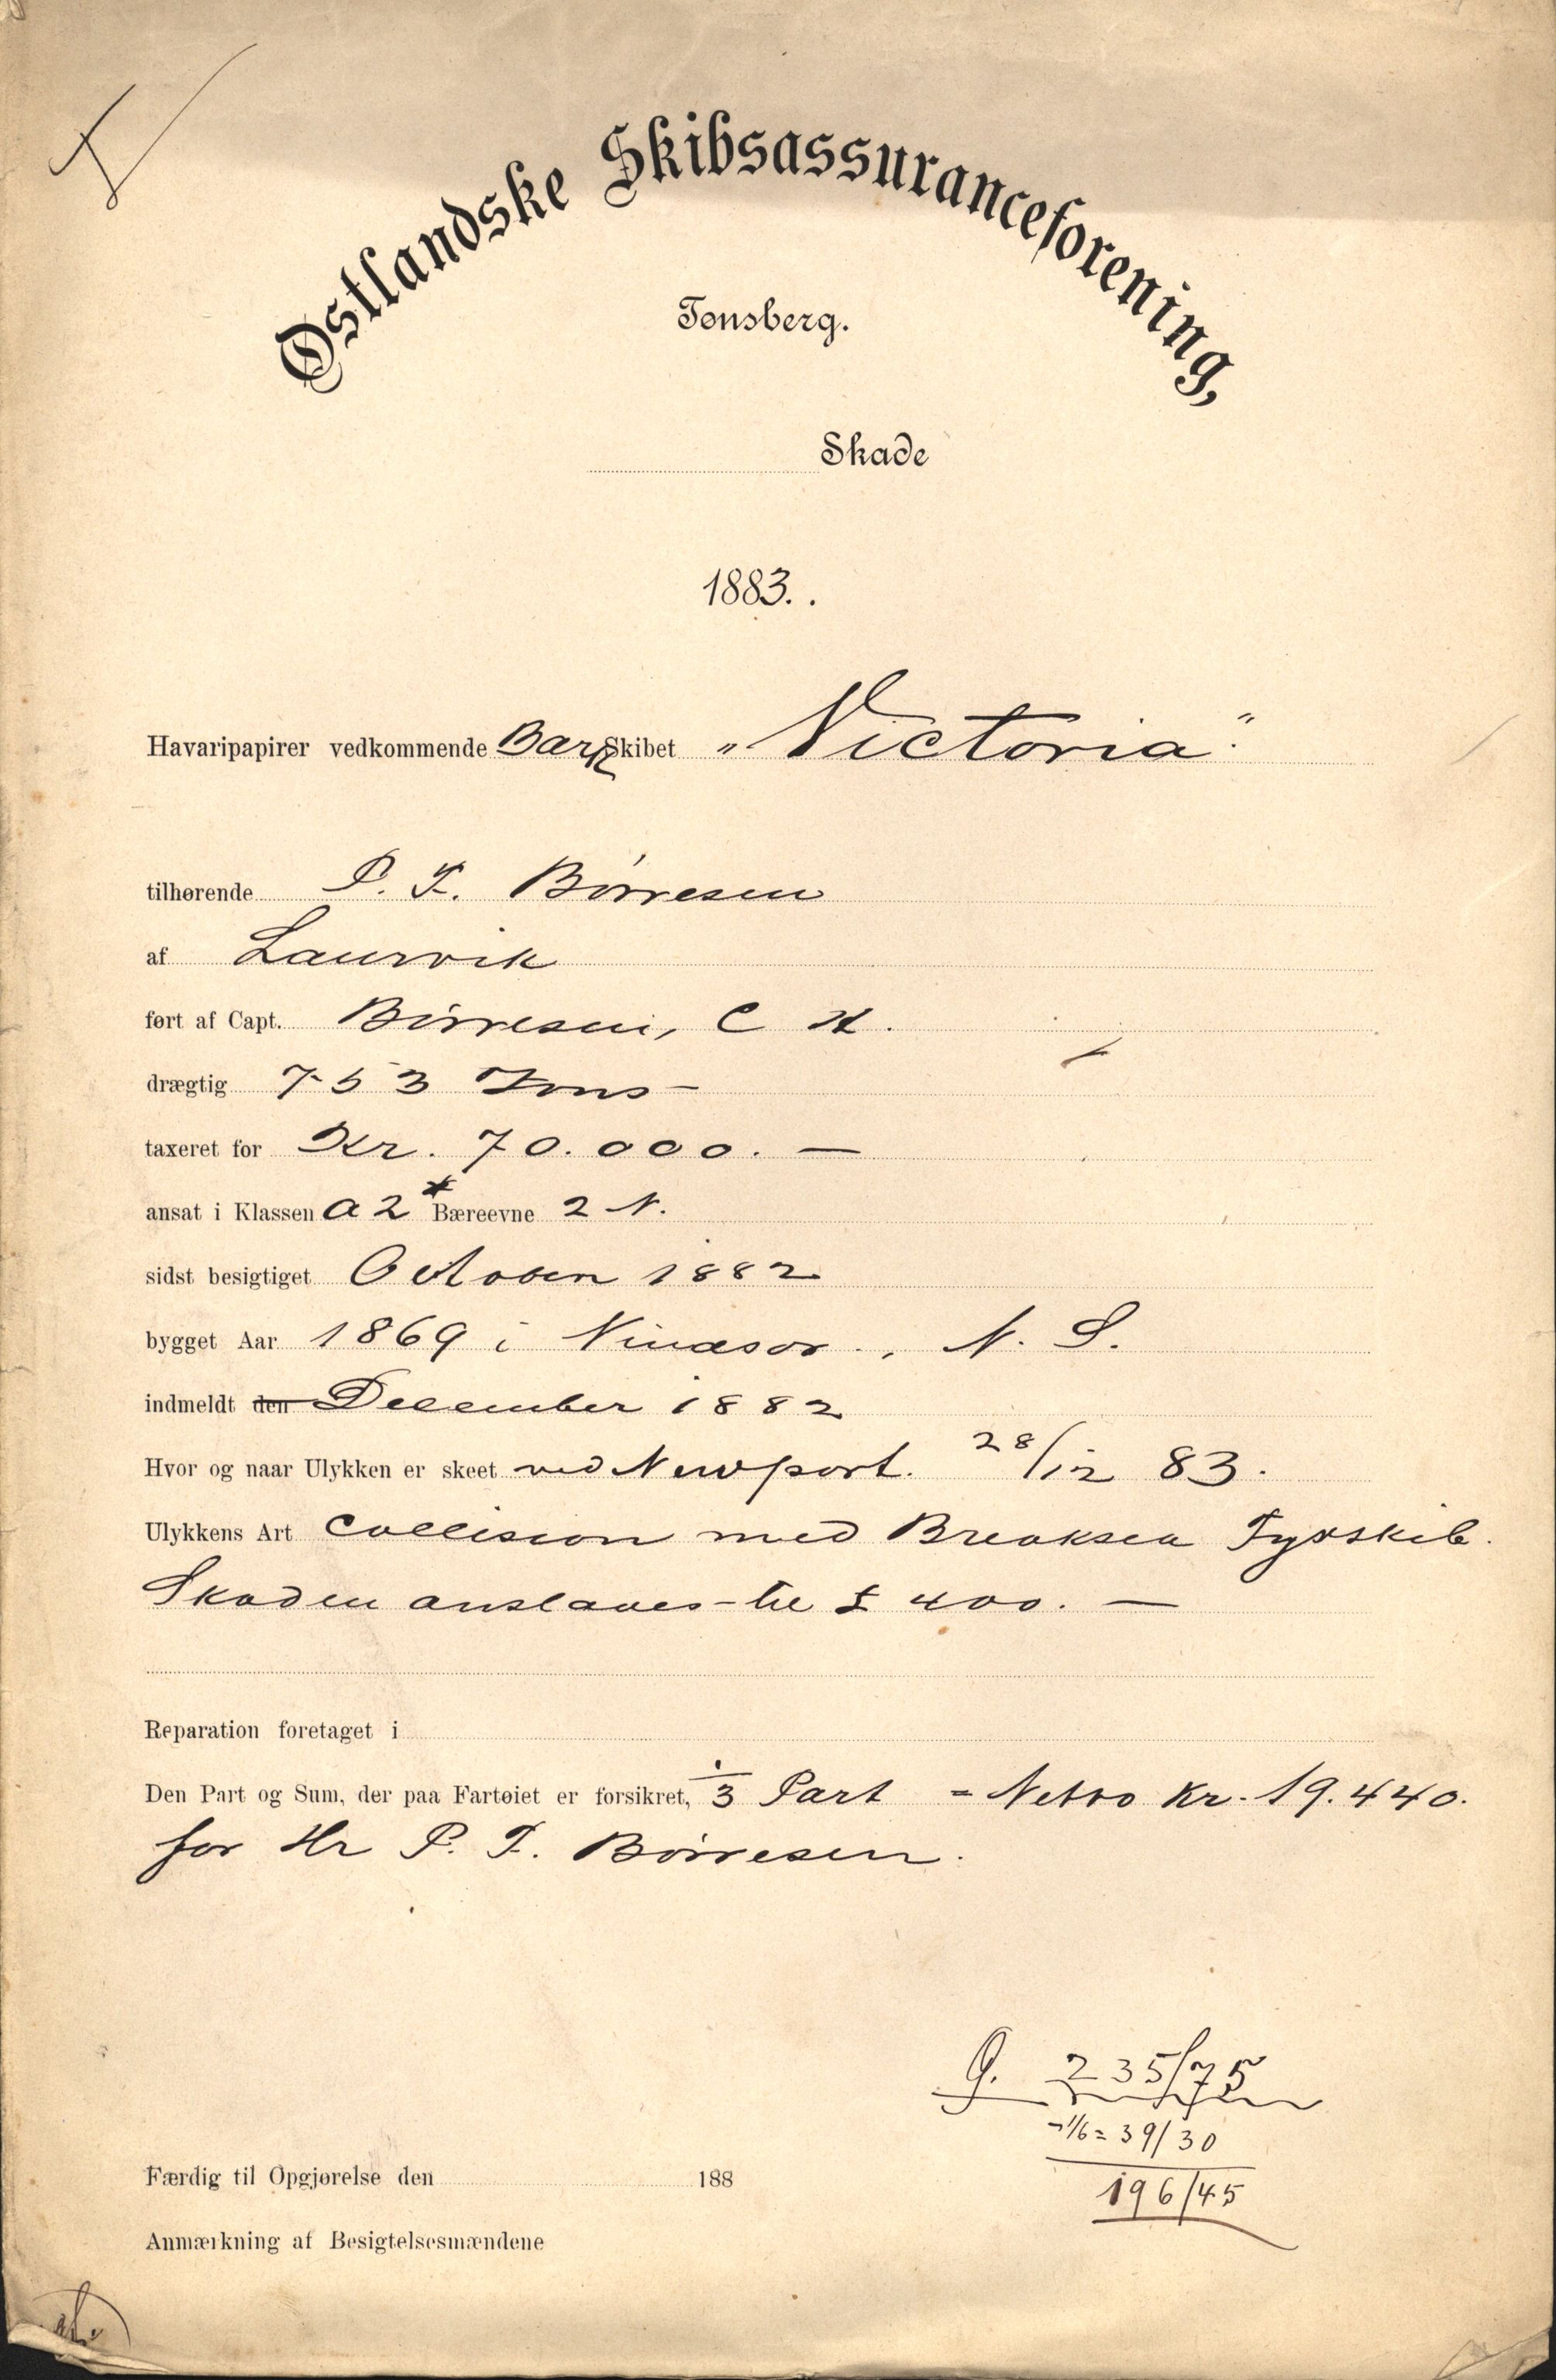 Østlandske Skibsassuranceforening,
Tønsberg.
Skade
1883. .
Havaripapirer vedkommende Bark Skibet „Victoria".
tilhørende P. F. Børresen
af Laurvik
ført af Capt. Børresen, C H.
drægtig 753 Tons –
taxeret for Kr. 70.000. —
ansat i Klassen A 2* Bæreevne 2 N.
sidst besigtiget October 1882
bygget Aar 1869 i Windsor, N. S.
indmeldt den December 1882
Hvor og naar Ulykken er skeet ved Newport. 28/12 83.
Ulykkens Art Collision med Breaksea Fyrskib.
Skaden anslaaes til £ 400. —
Reparation foretaget i
Den Part og Sum, der paa Fartøiet er forsikret, 1/3 Part = Netto Kr. 19.440.
for Hr P. F. Børresen.
G. 235/75
-1/6 = 39/30
196/45
Færdig til Opgjørelse den 188
Anmærkning af Besigtelsesmændene